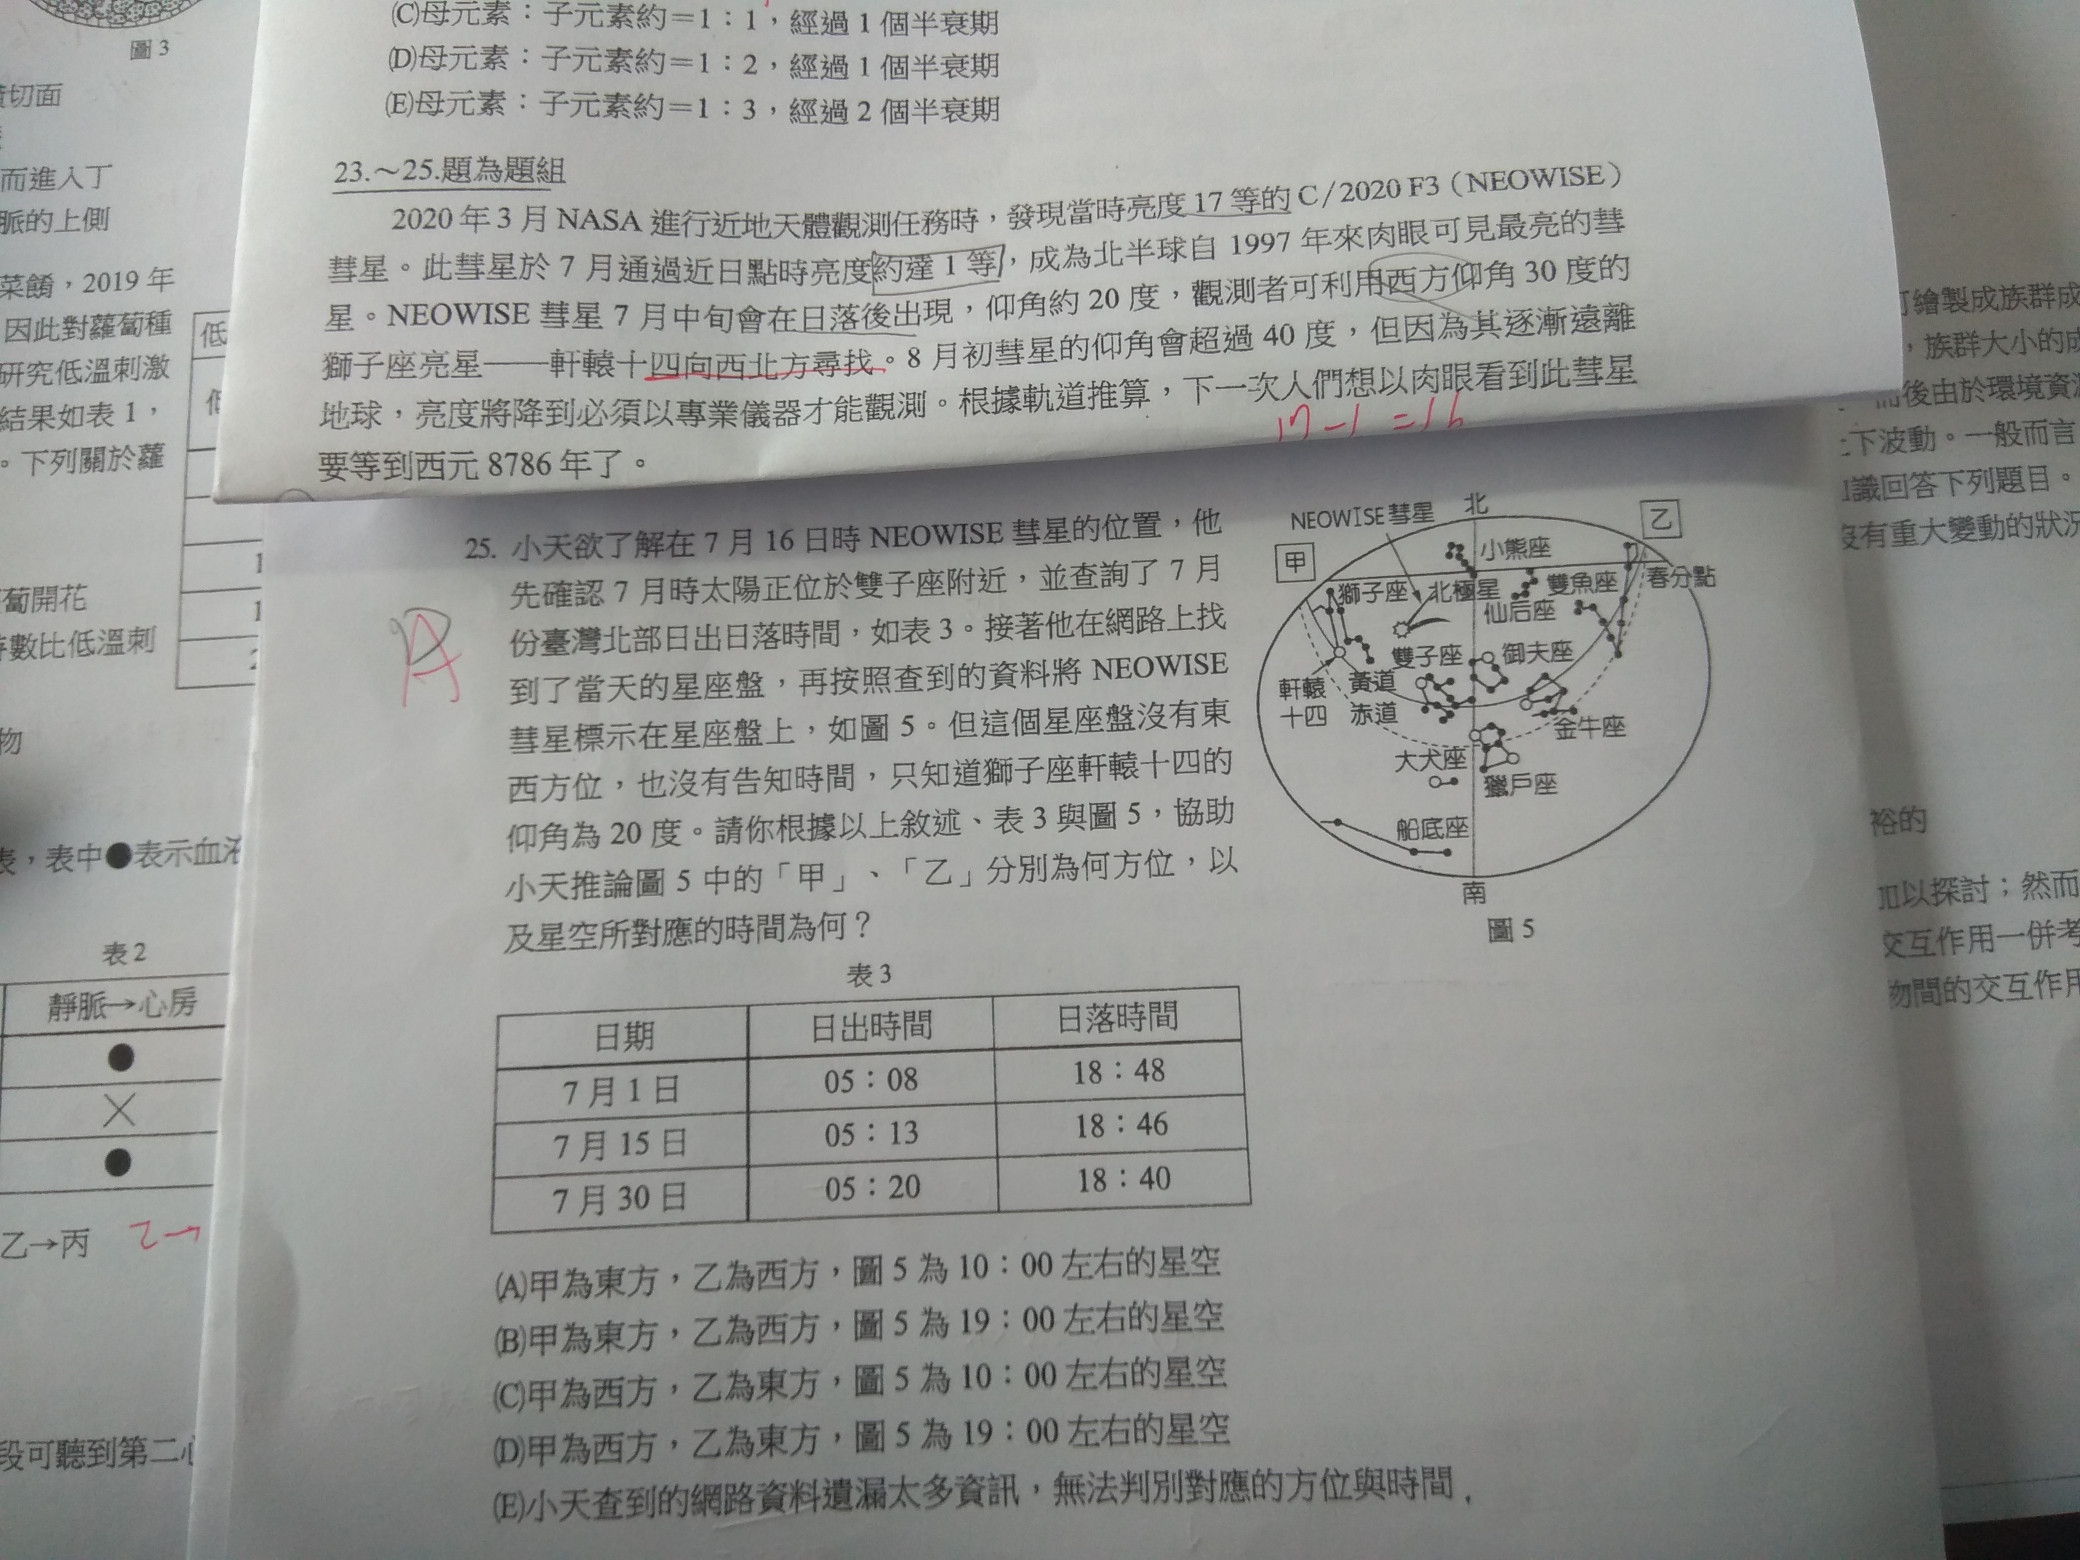 圖3
(C)母元素：子元素約＝1：1，經過 1 個半衰期
(D)母元素：子元素約＝1：2，經過 1 個半衰期
(E)母元素：子元素約＝1：3，經過 2 個半衰期
23.～25.題為題組
2020 年 3 月 NASA 進行近地天體觀測任務時，發現當時亮度 17 等的 C/2020 F3（NEOWISE）
彗星。此彗星於 7 月通過近日點時亮度約達 1 等，成為北半球自 1997 年來肉眼可見最亮的彗
星。NEOWISE 彗星 7 月中旬會在日落後出現，仰角約 20 度，觀測者可利用西方仰角 30 度的
獅子座亮星——軒轅十四向西北方尋找。8 月初彗星的仰角會超過 40 度，但因為其逐漸遠離
地球，亮度將降到必須以專業儀器才能觀測。根據軌道推算，下一次人們想以肉眼看到此彗星
要等到西元 8786 年了。
17－1＝16
切面
而進入丁
脈的上側
菜餚，2019 年
因此對蘿蔔種
研究低溫刺激
結果如表 1，
。下列關於蘿
低
蔔開花
時數比低溫刺
物
表，表中●表示血液
表 2
靜脈→心房
●
×
●
乙→丙
乙→
段可聽到第二心
25. 小天欲了解在 7 月 16 日時 NEOWISE 彗星的位置，他
先確認 7 月時太陽正位於雙子座附近，並查詢了 7 月
份臺灣北部日出日落時間，如表 3。接著他在網路上找
到了當天的星座盤，再按照查到的資料將 NEOWISE
彗星標示在星座盤上，如圖 5。但這個星座盤沒有東
西方位，也沒有告知時間，只知道獅子座軒轅十四的
仰角為 20 度。請你根據以上敘述、表 3 與圖 5，協助
小天推論圖 5 中的「甲」、「乙」分別為何方位，以
及星空所對應的時間為何？
A
NEOWISE彗星
北
乙
甲
小熊座
獅子座
北極星
雙魚座
春分點
仙后座
雙子座
御夫座
軒轅十四
黃道
赤道
金牛座
大犬座
獵戶座
船底座
南
圖 5
表 3
日期 日出時間 日落時間
7 月 1 日 05：08 18：48
7 月 15 日 05：13 18：46
7 月 30 日 05：20 18：40
(A)甲為東方，乙為西方，圖 5 為 10：00 左右的星空
(B)甲為東方，乙為西方，圖 5 為 19：00 左右的星空
(C)甲為西方，乙為東方，圖 5 為 10：00 左右的星空
(D)甲為西方，乙為東方，圖 5 為 19：00 左右的星空
(E)小天查到的網路資料遺漏太多資訊，無法判別對應的方位與時間
繪製成族群成
，族群大小的成
而後由於環境資源
上下波動。一般而言
識回答下列題目。
沒有重大變動的狀況
裕的
加以探討；然而
交互作用一併考
物間的交互作用